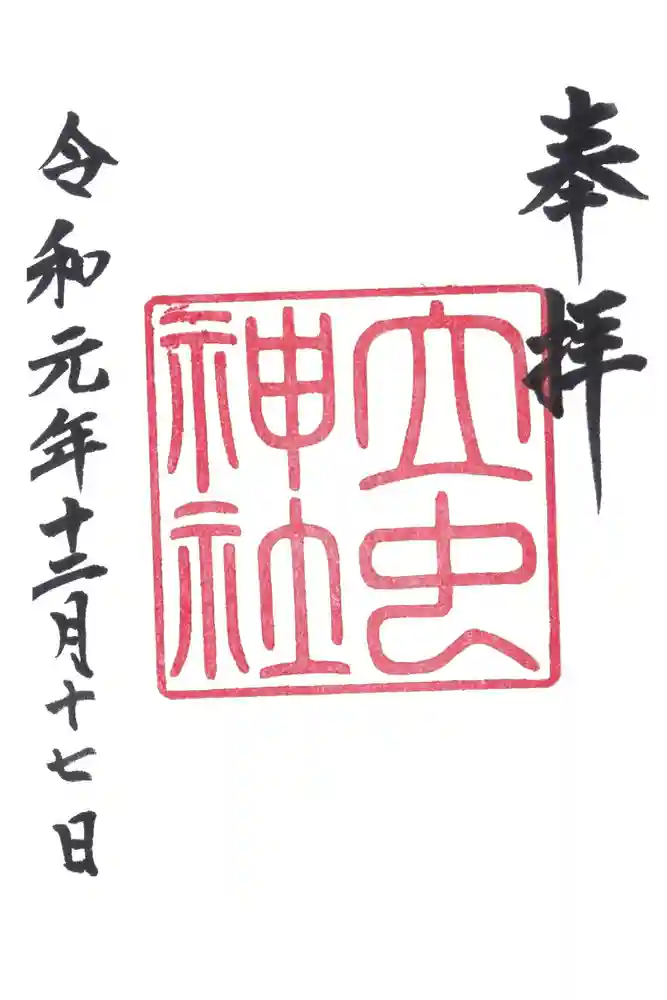 奉拝
立虫
神社
令和元年十二月十七日